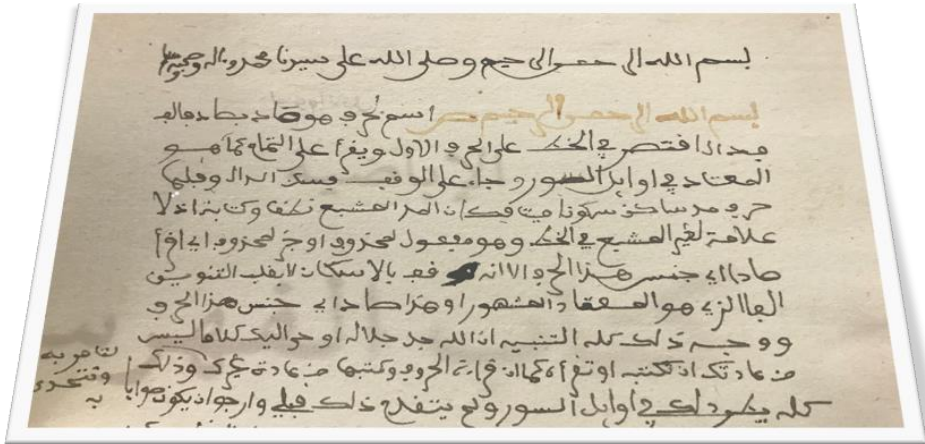 بسم الله الرحمن الرحيم وصلى الله على سيدنا محمد وءاله وصحبه
بسم الله الرحمن الرحيم ص اسم لحرف وهو صاد بصاد فألف
فدال اقتصر في الخط على الحرف الاول ويقرأ على التمام كما هو
المعتاد في اوايل السور وجاء على الوقف فسكن الدال وقبلها
حرف مد ساكن سكونا ميتا فكان المد المشبع نطقا وكتابة اذ لا
علامة لغير المشبع في الخط وهو مفعول لمحذوف او خبر لمحذوف اي اقرأ
صادا اي جنس هذا الحرف الا انه وقف بالاسكان لا بقلب التنوين
الفا الذي هو المعتاد المشهور او هذا صاد اي جنس هذا الحرف
ووجه ذلك كله التنبيه ان الله جل جلاله اوحى اليك كلاما ليس
من عادتك ان تكتبه او تقرأه كما ان قراءة الحروف وكتبها من عادة غيرك وذلك
كله يطرد لك في اوايل السور ولم يتقدم ذلك قبلي وارجو ان يكون صوابا
تامر به
وتتحدى
به